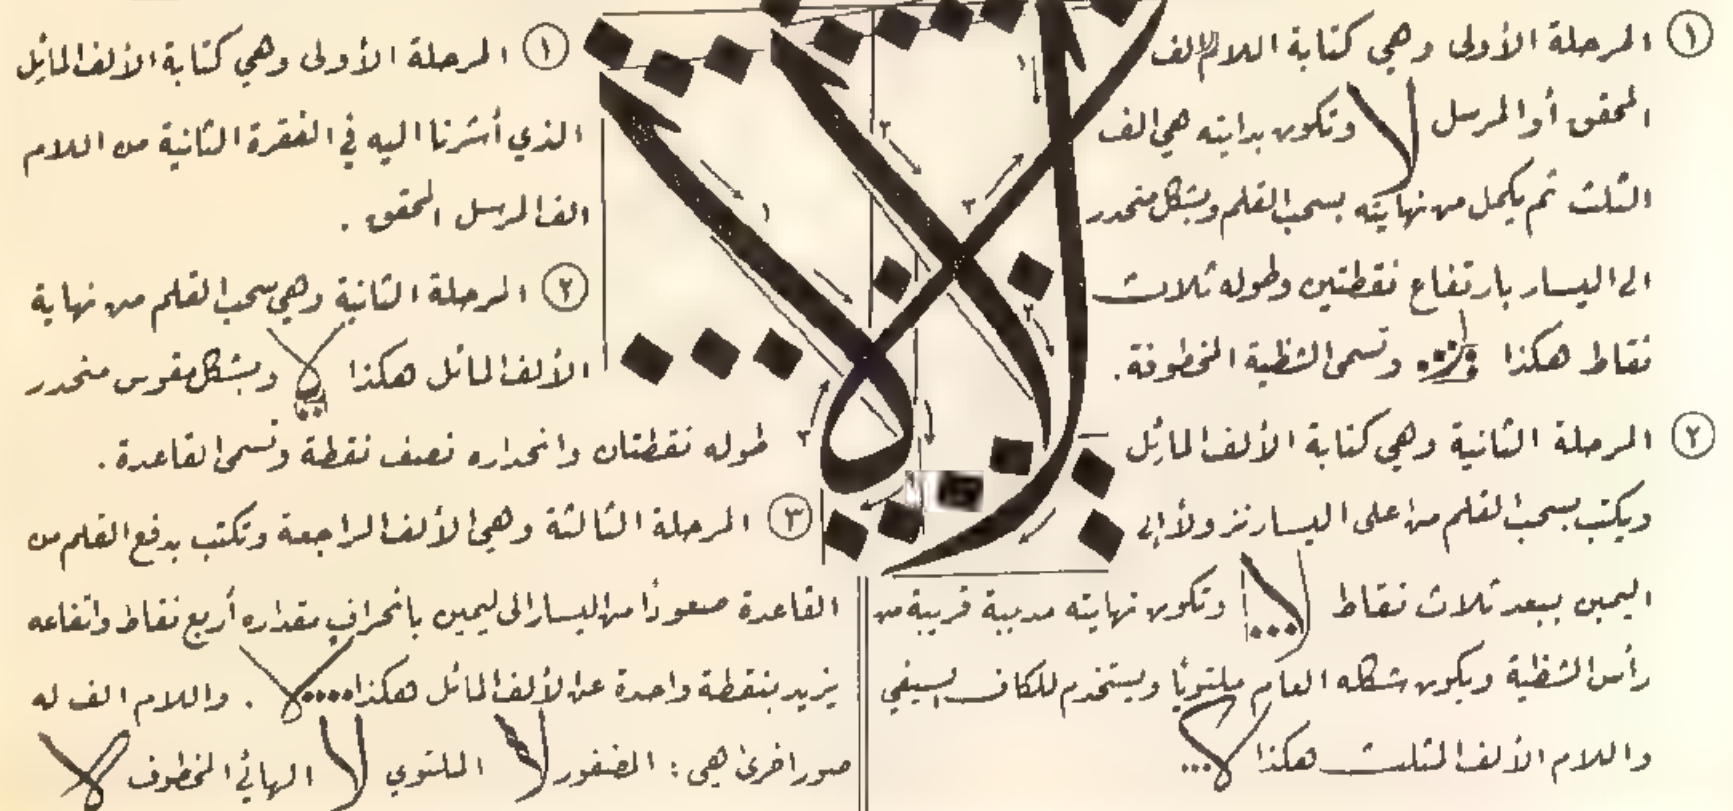 ١ المرحلة الأولى وهي كتابة اللام الف
المحقق أو المرسل لا وتكون بدايته هي الف
الثلث ثم يكمل من نهايته بسحب القلم وبشكل منحدر
الى اليسار بارتفاع نقطتين وطوله ثلاث
نقاط هكذا وتسمى الشظية المخطوفة .
٢ المرحلة الثانية وهي كتابة الألف المائل
ويكتب بسحب القلم من اعلى اليسار نزولاً إلى
اليمين ببعد ثلاث نقاط لا وتكون نهايته مدببة قريبة من
رأس الشظية ويكون شكله العام ملتوياً ويستخدم للكاف السيفي
واللام الألف المثلث هكذا
١ المرحلة الأولى وهي كتابة الألف المائل
الذي أشرنا اليه في الفقرة الثانية من اللام
الف المرسل المحقق .
٢ المرحلة الثانية وهي سحب القلم من نهاية
الألف المائل هكذا وبشكل مقوس منحدر
طوله نقطتان وانحداره نصف نقطة وتسمى القاعدة .
٣ المرحلة الثالثة وهي الألف الراجعة وتكتب بدفع القلم من
القاعدة صعوداً من اليسار الى ليمين بانحراف مقداره أربع نقاط واتفاعه
يزيد بنقطة واحدة عن لألف المائل هكذا . واللام الف له
صور اخرى هي : المضفور لا الملتوي لا الهائي المخطوف لا
لا
١
٢
٣
٢
١
٢